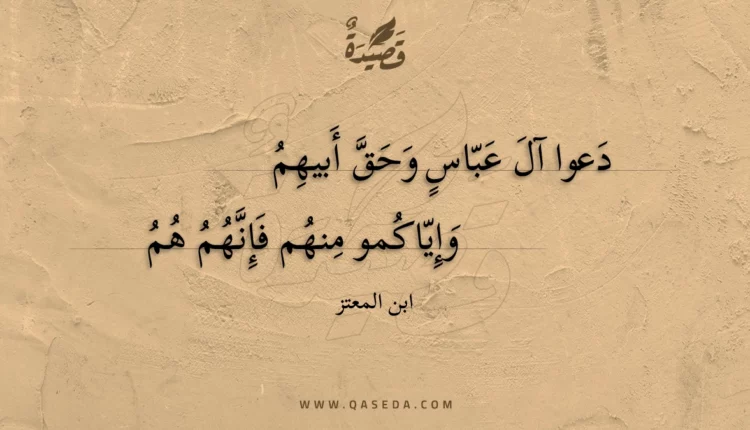 قَصِيدَةٌ
دَعوا آلَ عَبّاسٍ وَحَقَّ أَبيهِمُ
وَإِيّاكُمو مِنهُم فَإِنَّهُمُ هُمُ
ابن المعتز
WWW.QASEDA.COM